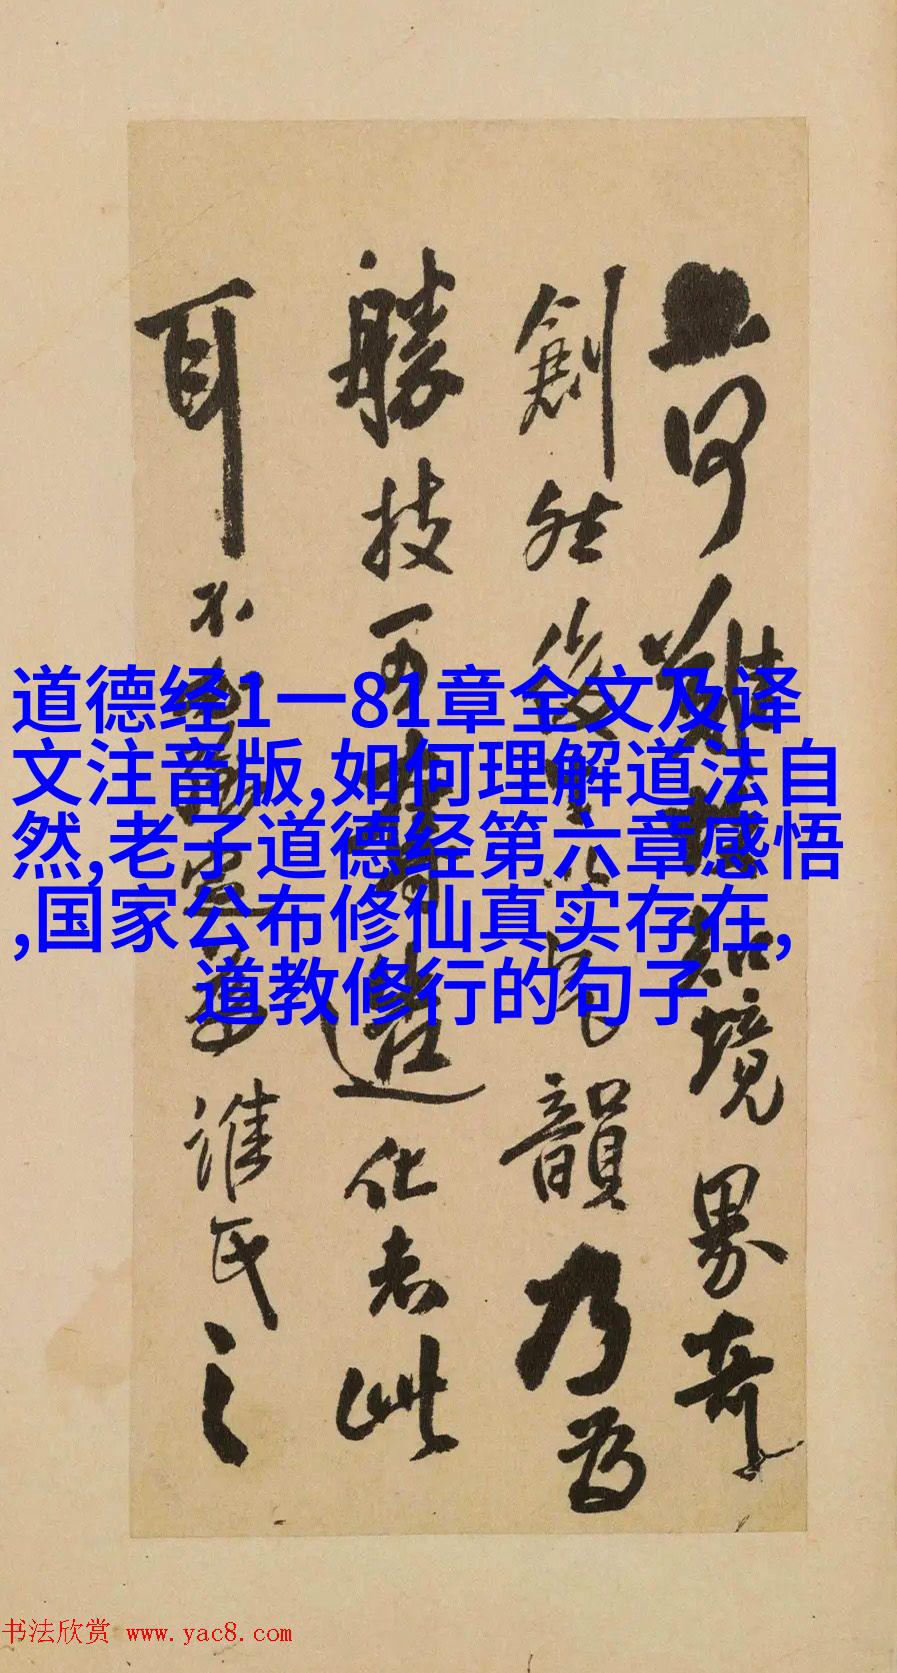 道德经1一81章全文及译
文注音版,如何理解道法自
然,老子道德经第六章感悟
,国家公布修仙真实存在,
道教修行的句子
何難境界奇
創然後韻乃為
勝技造化者此
耳不誰氏之
书法欣赏 www.yac8.com